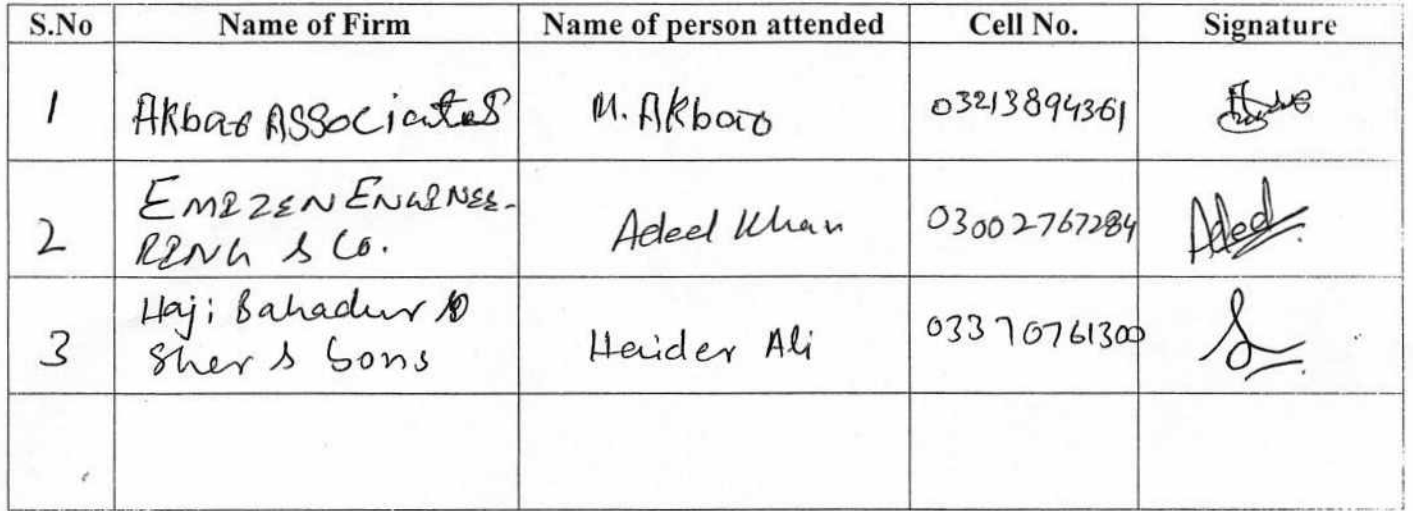 S.No Name of Firm Name of person attended Cell No. Signature
1 AKbar ASSociates M. AKbar 03213894361
EMIZEN ENGINEE-
2 RING & Co. Adeel Khan 03002767284 Adeel
Haji Bahadur
3 Sher & Sons Haider Ali 03370761300